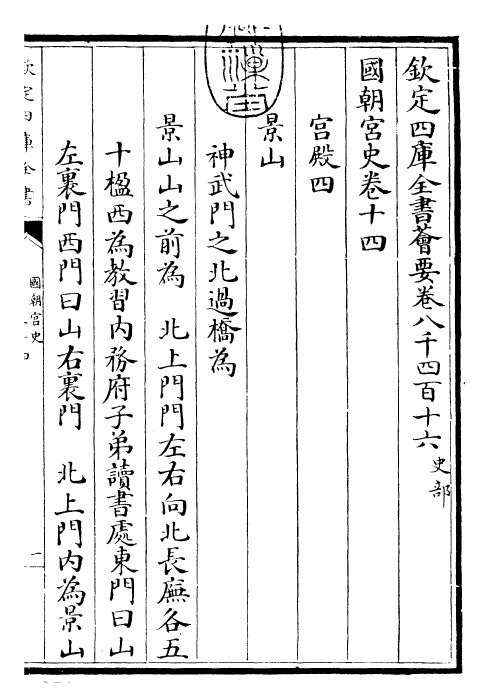 欽定四庫全書薈要卷八千四百十六 史部
國朝宮史卷十四
宮殿四
景山
神武門之北過橋為
景山山之前為 北上門門左右向北長廡各五
十楹西為教習內務府子弟讀書處東門曰山
左裏門西門曰山右裏門 北上門內為景山
欽定四庫全書
國朝宮史